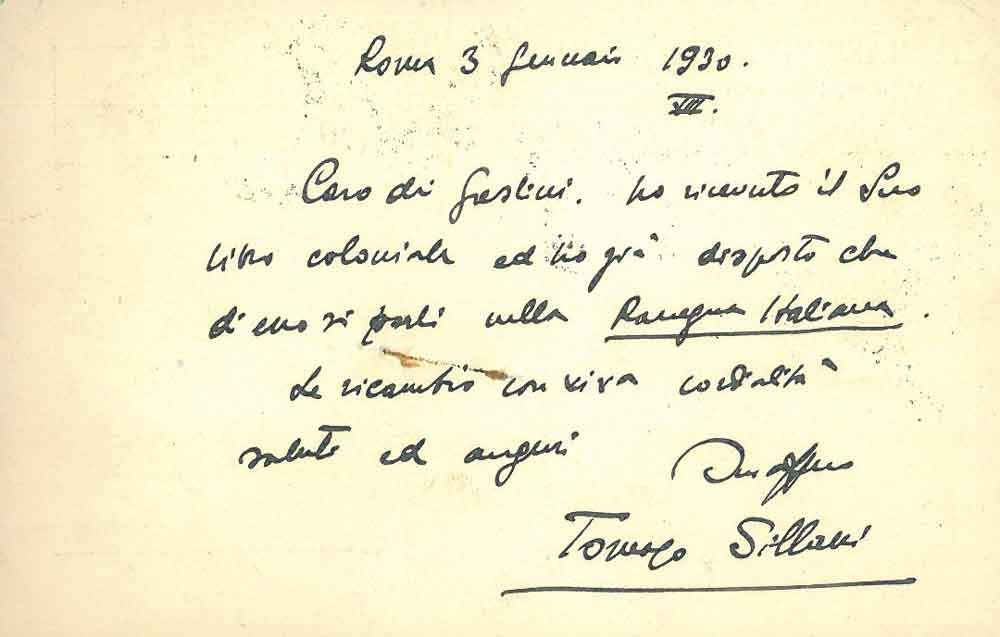 Roma 3 gennaio 1930.
VIII.
Caro di Gaslini. ho ricevuto il Suo
libro coloniale ed ho già disposto che
di esso si parli nella Rassegna Italiana.
Le ricambio con viva cordialità
saluti ed auguri
Tomaso Sillani